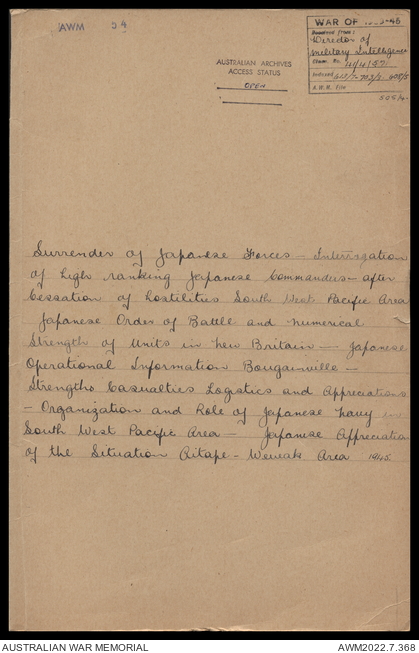 AWM 54
WAR OF 1939-45
Received from:
Director of
Military Intelligence
AUSTRALIAN ARCHIVES
ACCESS STATUS
OPEN
A.W.M. File
Surrender of Japanese Forces - Interrogation
of high ranking Japanese Commanders - after
Cessation of hostilities South West Pacific Area
Japanese Order of Battle and numerical
Strength of Units in New Britain - Japanese
Operational Information Bougainville -
Strengths Casualties Logistics and Appreciations
- Organization and Role of Japanese Navy in
South West Pacific Area - Japanese Appreciation
of the Situation Aitape - Wewak Area 1945.
AUSTRALIAN WAR MEMORIAL
AWM2022.7.368